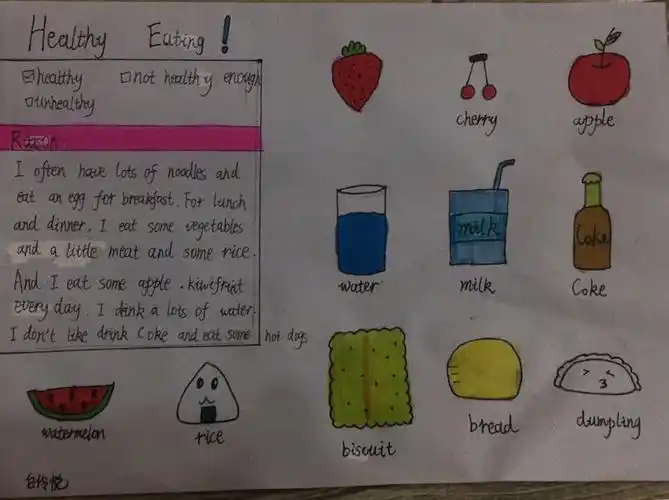 Healthy Eating!
☑healthy □not healthy enough
□unhealthy
I often have lots of noodles and
eat an egg for breakfast. For lunch
and dinner, I eat some vegetables
and a little meat and some rice.
And I eat some apple. kiwifruit
every day. I drink a lots of water.
I don't like drink Coke and eat some hot dogs
cherry
apple
milk
Coke
water
milk
Coke
watermelon
rice
biscuit
bread
dumpling